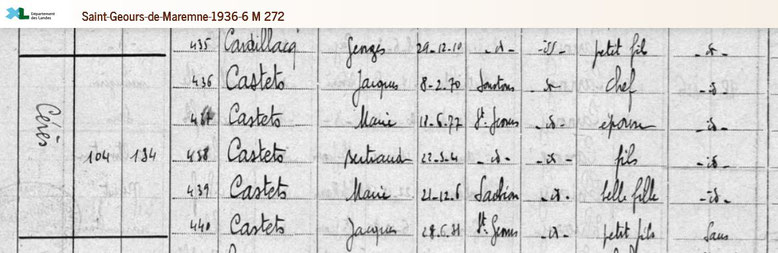 Département
des Landes
Saint-Geours-de-Maremne-1936-6 M 272
435 Cardillacq Georges 29-12-10 -d- -id- petit fils -id-
436 Castets Jacques 8-2-70 Soustons -id- chef -id-
437 Castets Marie 18-6-77 St. Geours -id- épouse -id-
Cérès 104 134 438 Castets Bertrand 22-5-4 -id- -id- fils -id-
439 Castets Marie 21-12-6 -id- belle fille -id-
440 Castets Jacques 28-6-31 St. Geours -id- petit fils Sans